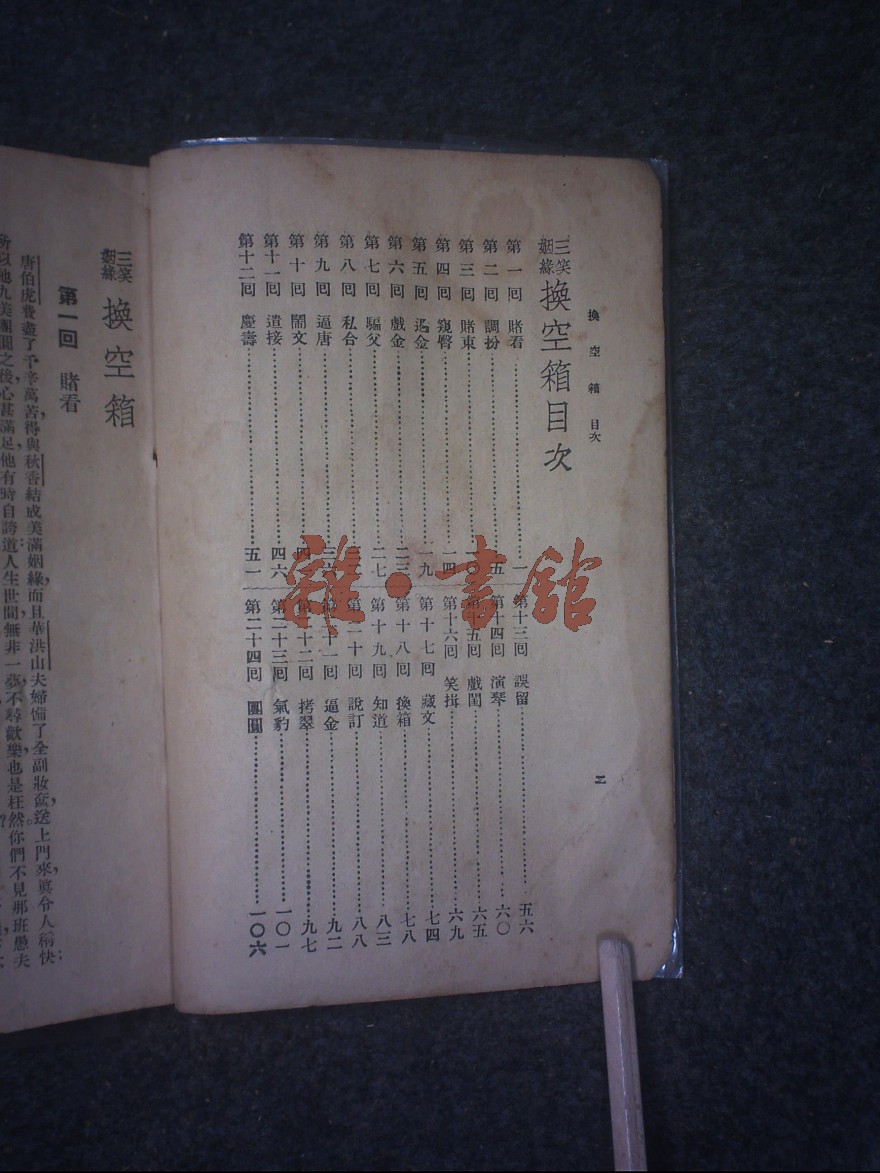 換空箱目次
三笑姻緣 換空箱目次
第一回 賭看 一
第二回 調扮 五
第三回 賭東 一〇
第四回 窺臀 一四
第五回 金 一九
第六回 戲金 二三
第七回 騙父 二七
第八回 私合
第九回 逼唐
第十回 鬧文
第十一回 遣接 四六
第十二回 慶壽 五一
第十三回 誤留 五六
第十四回 演琴 六〇
第十五回 戲閨 六五
第十六回 笑揖 六九
第十七回 藏文 七四
第十八回 換箱 七八
第十九回 知道 八三
第二十回 說訂 八八
第二十一回 逼金 九二
第二十二回 拷翠 九七
第二十三回 氣豹 一〇一
第二十四回 團圓 一〇六
二
雜·書館
三笑姻緣 換空箱
第一回 賭看
唐伯虎費盡了千辛萬苦,得與秋香結成美滿姻緣,而且華洪山夫婦備了全副妝奩,送上門來,眞令人稱快;
所以他九美團圓之後,心甚滿足,他有時自誇道:人生世間,無非一夢,不尋歡樂,也是枉然,你們不見那班愚夫